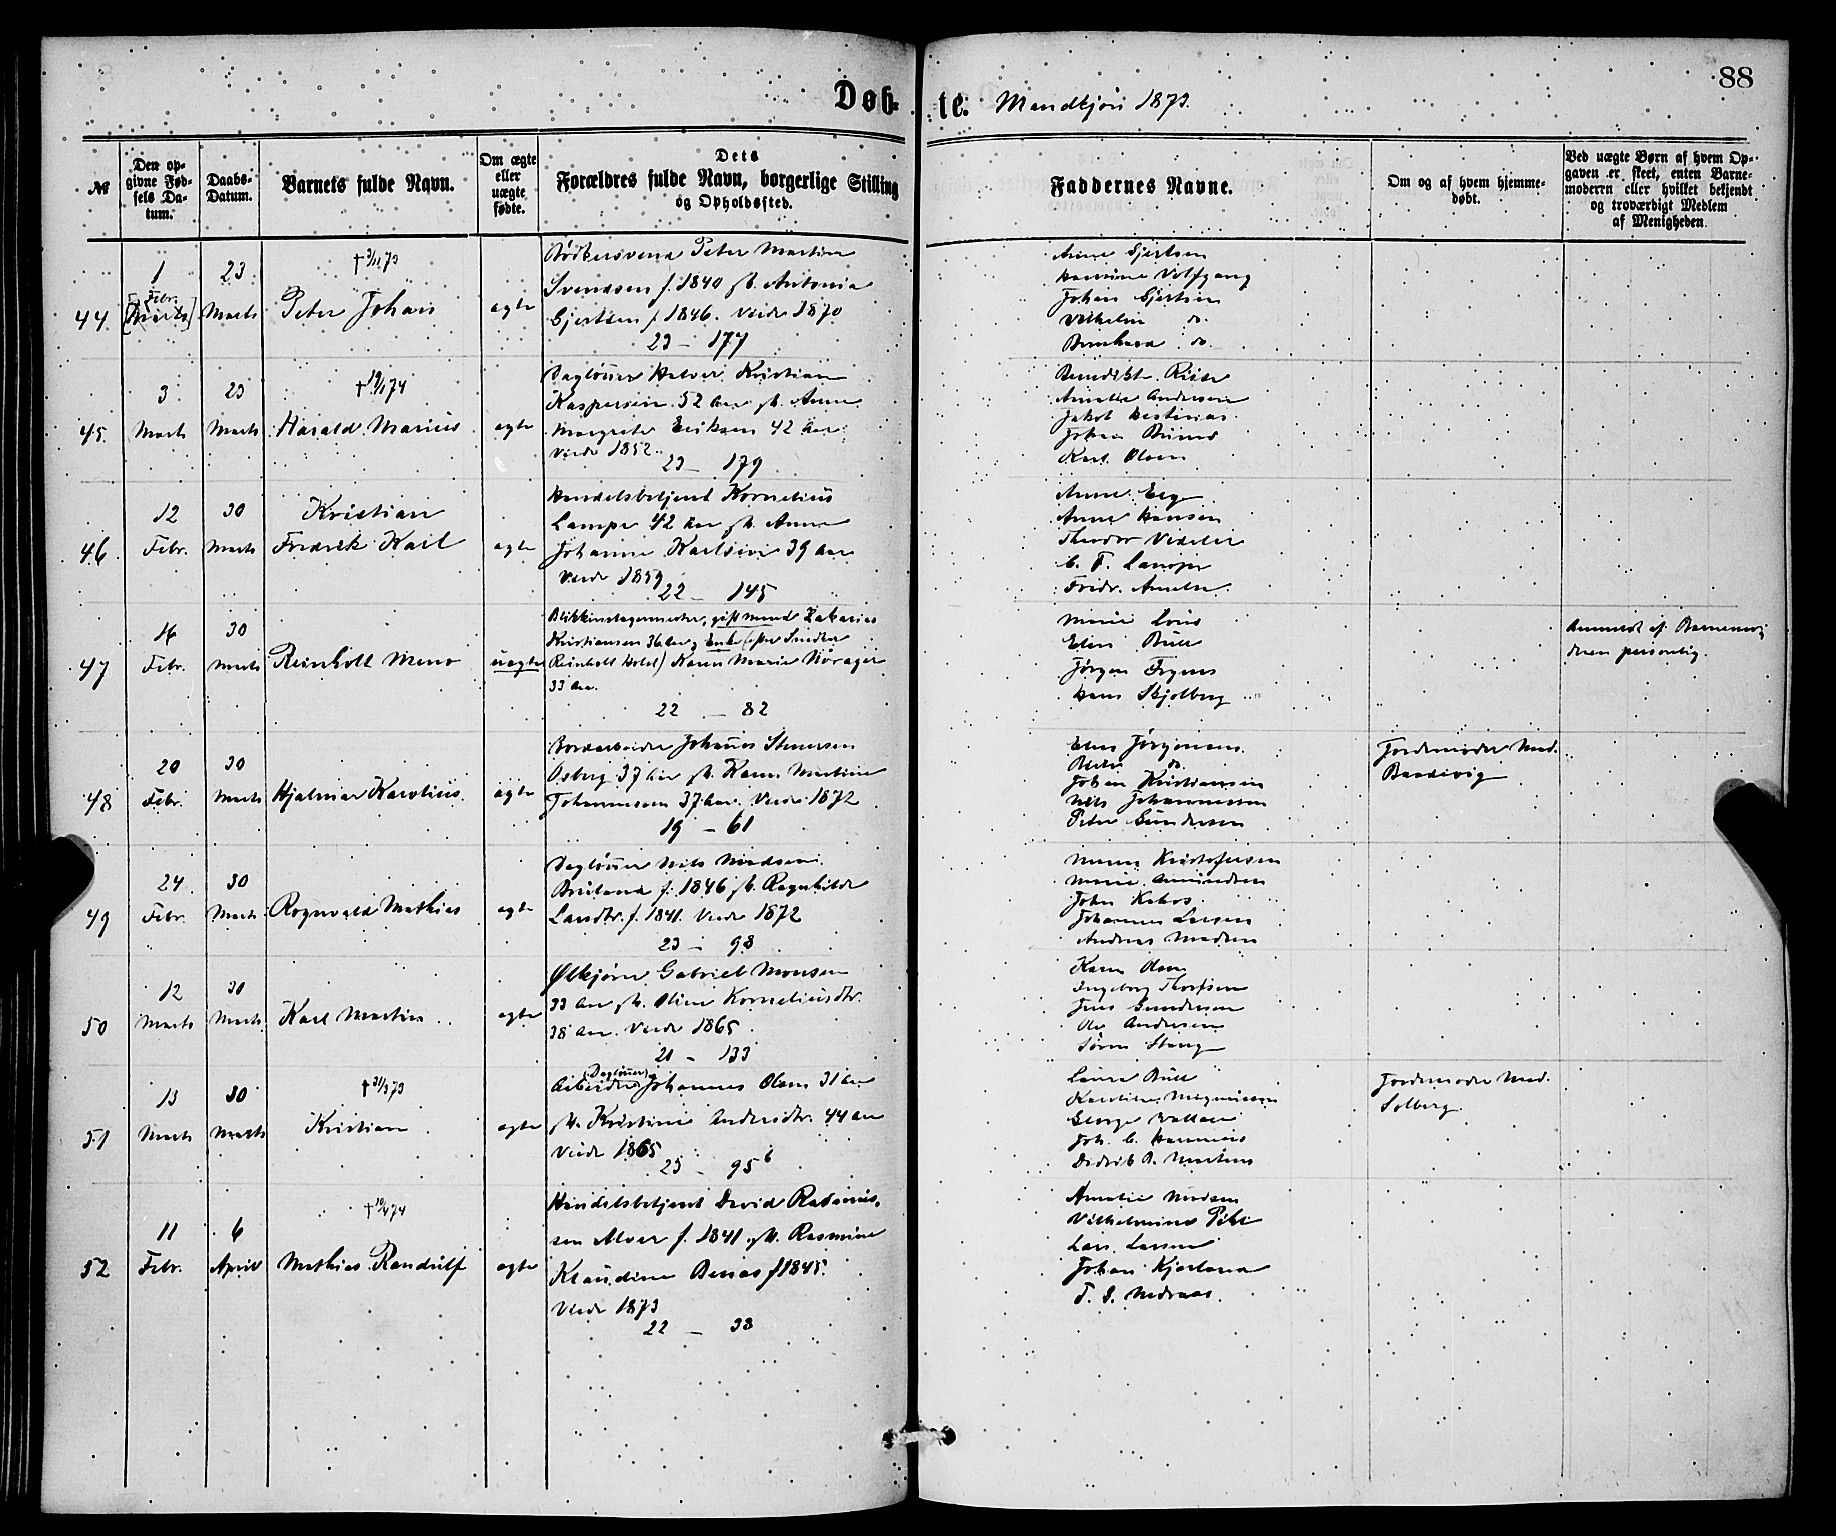 88
Døb-
te. Mandkjøn 1873.
№
Den op-
givne Fød-
sels Da-
tum.
Daabs-
Datum.
Barnets fulde Navn.
Om ægte
eller
uægte
fødte.
Dets
Forældres fulde Navn, borgerlige Stilling
og Opholdssted.
Faddernes Navne.
Om og af hvem hjemme-
døbt.
Ved uægte Børn af hvem Op-
gaven er skeet, enten Barne-
moderen eller hvilket bekjendt
og troværdigt Medlem
af Menigheden.
44.
1
Febr.
[Marts]
23
Marts
† 3/11 73
Peter Johan
ægte
Bødkersvend Peter Martin
Svendsen f. 1840 h. Antonia
Gjertsen f 1846. Viede 1870
23 — 177
Anne Gjertsen
Volfgang
Johan Gjertsen
Vilhelm do.
Bernhard do.
45.
3
Marts
23
Marts
† 19/1 74
Harald Marius
ægte
Dagløner Halvor Kristian
Kaspersen 52 Aar h. Anne
Margrete Eriksen 42 Aar
Viede 1852.
23 — 179
Benedikte
Amalie Andersen
Jakob
Johan
Karl Olsen
46.
12
Febr.
30
Marts
Kristian
Fredrik Karl
ægte
Handelsbetjent Kornelius
Lampe 42 Aar h. Anna
Johanne Karlsen 39 Aar
Viede 1859
22 — 145
Anne
Anna Hansen
Theodor Vedeler
C. F. Lampe
Fredr.
47
16
Febr.
30
Marts
Reinholt Meno
uægte
Blikkenslagermester, gift mand Zakarias
Kristiansen 36 Aar og Enke (efter Snedker
Reinholt Holst) Karen Marie Nørager
33 Aar.
22 — 82
Marie
Elen Bull
Jørgen
Hans Skjolberg
Anmeldt af Barnemo-
deren personlig.
48
20
Febr.
30
Marts
Hjalmar Karolius.
ægte
Bordarbeider Johannes Stenersen
Osberg 37 Aar h. Karen Martine
Johannessen 37 Aar. Viede 1872
19 — 61
Elen Jørgensen.
do.
Johan Kristiansen
Nils Johannessen
Peter Gundersen
Jordemoder Mad.
49
24
Febr.
30
Marts
Rognvald Mathias
ægte
Dagløner Nils Madsen
f. 1846 h. Ragnhilde
Larsdtr. f. 1841. Viede 1872
23 — 93
Kristofersen
Marie Amundsen
John
Johannes Larsen
Andreas Madsen
50
12
Marts
30
Marts
Karl Martin
ægte
Ølkjører Gabriel Monsen
33 Aar h. Oline Korneliusdtr.
38 Aar. Viede 1865
21 — 133
Karen Olsen
Ingeborg
Jens Gundersen
Ole Andersen
Søren
51
13
Marts
30
Marts
† 31/3 73
Kristian
ægte
(Dagløner)
Arbeider Johannes Olsen 31 Aar
h. Kristine Andersdtr. 44 Aar
Viede 1865
23 — 95 b
Laura Bull
Karoline Magnussen
George Wallace
Joh. C.
Didrik B. Martens
Jordemoder Mad.
Solberg.
52
11
Febr.
6
April
† 10/4 74
Mathias Randulf
ægte
Handelsbetjent David Rasmus-
sen Alver f. 1841 h. Rasmine
Klaudine Benas f 1845.
Viede 1873
22 — 33
Amalie Madsen
Vilhelmine Pihl
Lars Larsen
Johan
T. S.